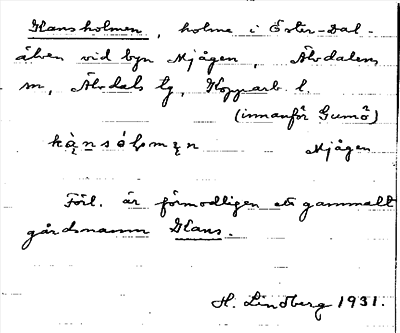 Hansholmen, holme i Öster-Dal-
älven vid byn Mjågen, Älvdalens
sn, Älvdals tg, Kopparb. l.
(innanför Gumö)
Mjågen
Förl. är förmodligen ett gammalt
gårdsnamn Hans.
H. Lindberg 1931.